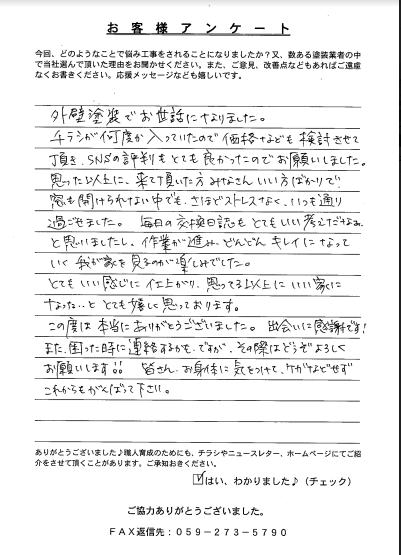 お客様アンケート
今回、どのようなことで悩み工事をされることになりましたか?又、数ある塗装業者の中
で当社選んで頂いた理由をお聞かせください。また、ご意見、改善点などもあればご遠慮
なくお書きください。応援メッセージなども嬉しいです。
外壁塗装でお世話になりました。
チラシが何度か入っていたので価格なども検討させて
頂き、SNSの評判もとても良かったのでお願いしました。
思った以上に、来て頂いた方みなさんいい方ばかりで
窓も開けられない中でも、さほどストレスなく、いつも通り
過ごせました。 毎日の交換日誌もとてもいい考えだなぁ
と思いましたし、作業が進み、どんどんキレイになって
いく我が家を見るのが楽しみでした。
とてもいい感じに仕上がり、思ってる以上にいい家に
なった..ととても嬉しく思っております。
この度は本当にありがとうございました。出会いに感謝です!
また、困った時に連絡するかも..ですが、その際はどうぞよろしく
お願いします!! 皆さん、お身体に気をつけて、ケガなどせず
これからもがんばって下さい。
ありがとうございました♪職人育成のためにも、チラシやニュースレター、ホームページにてご紹
介をさせて頂くことがあります。ご承知おきください。
はい、わかりました♪(チェック)
ご協力ありがとうございました。
FAX返信先:059-273-5790